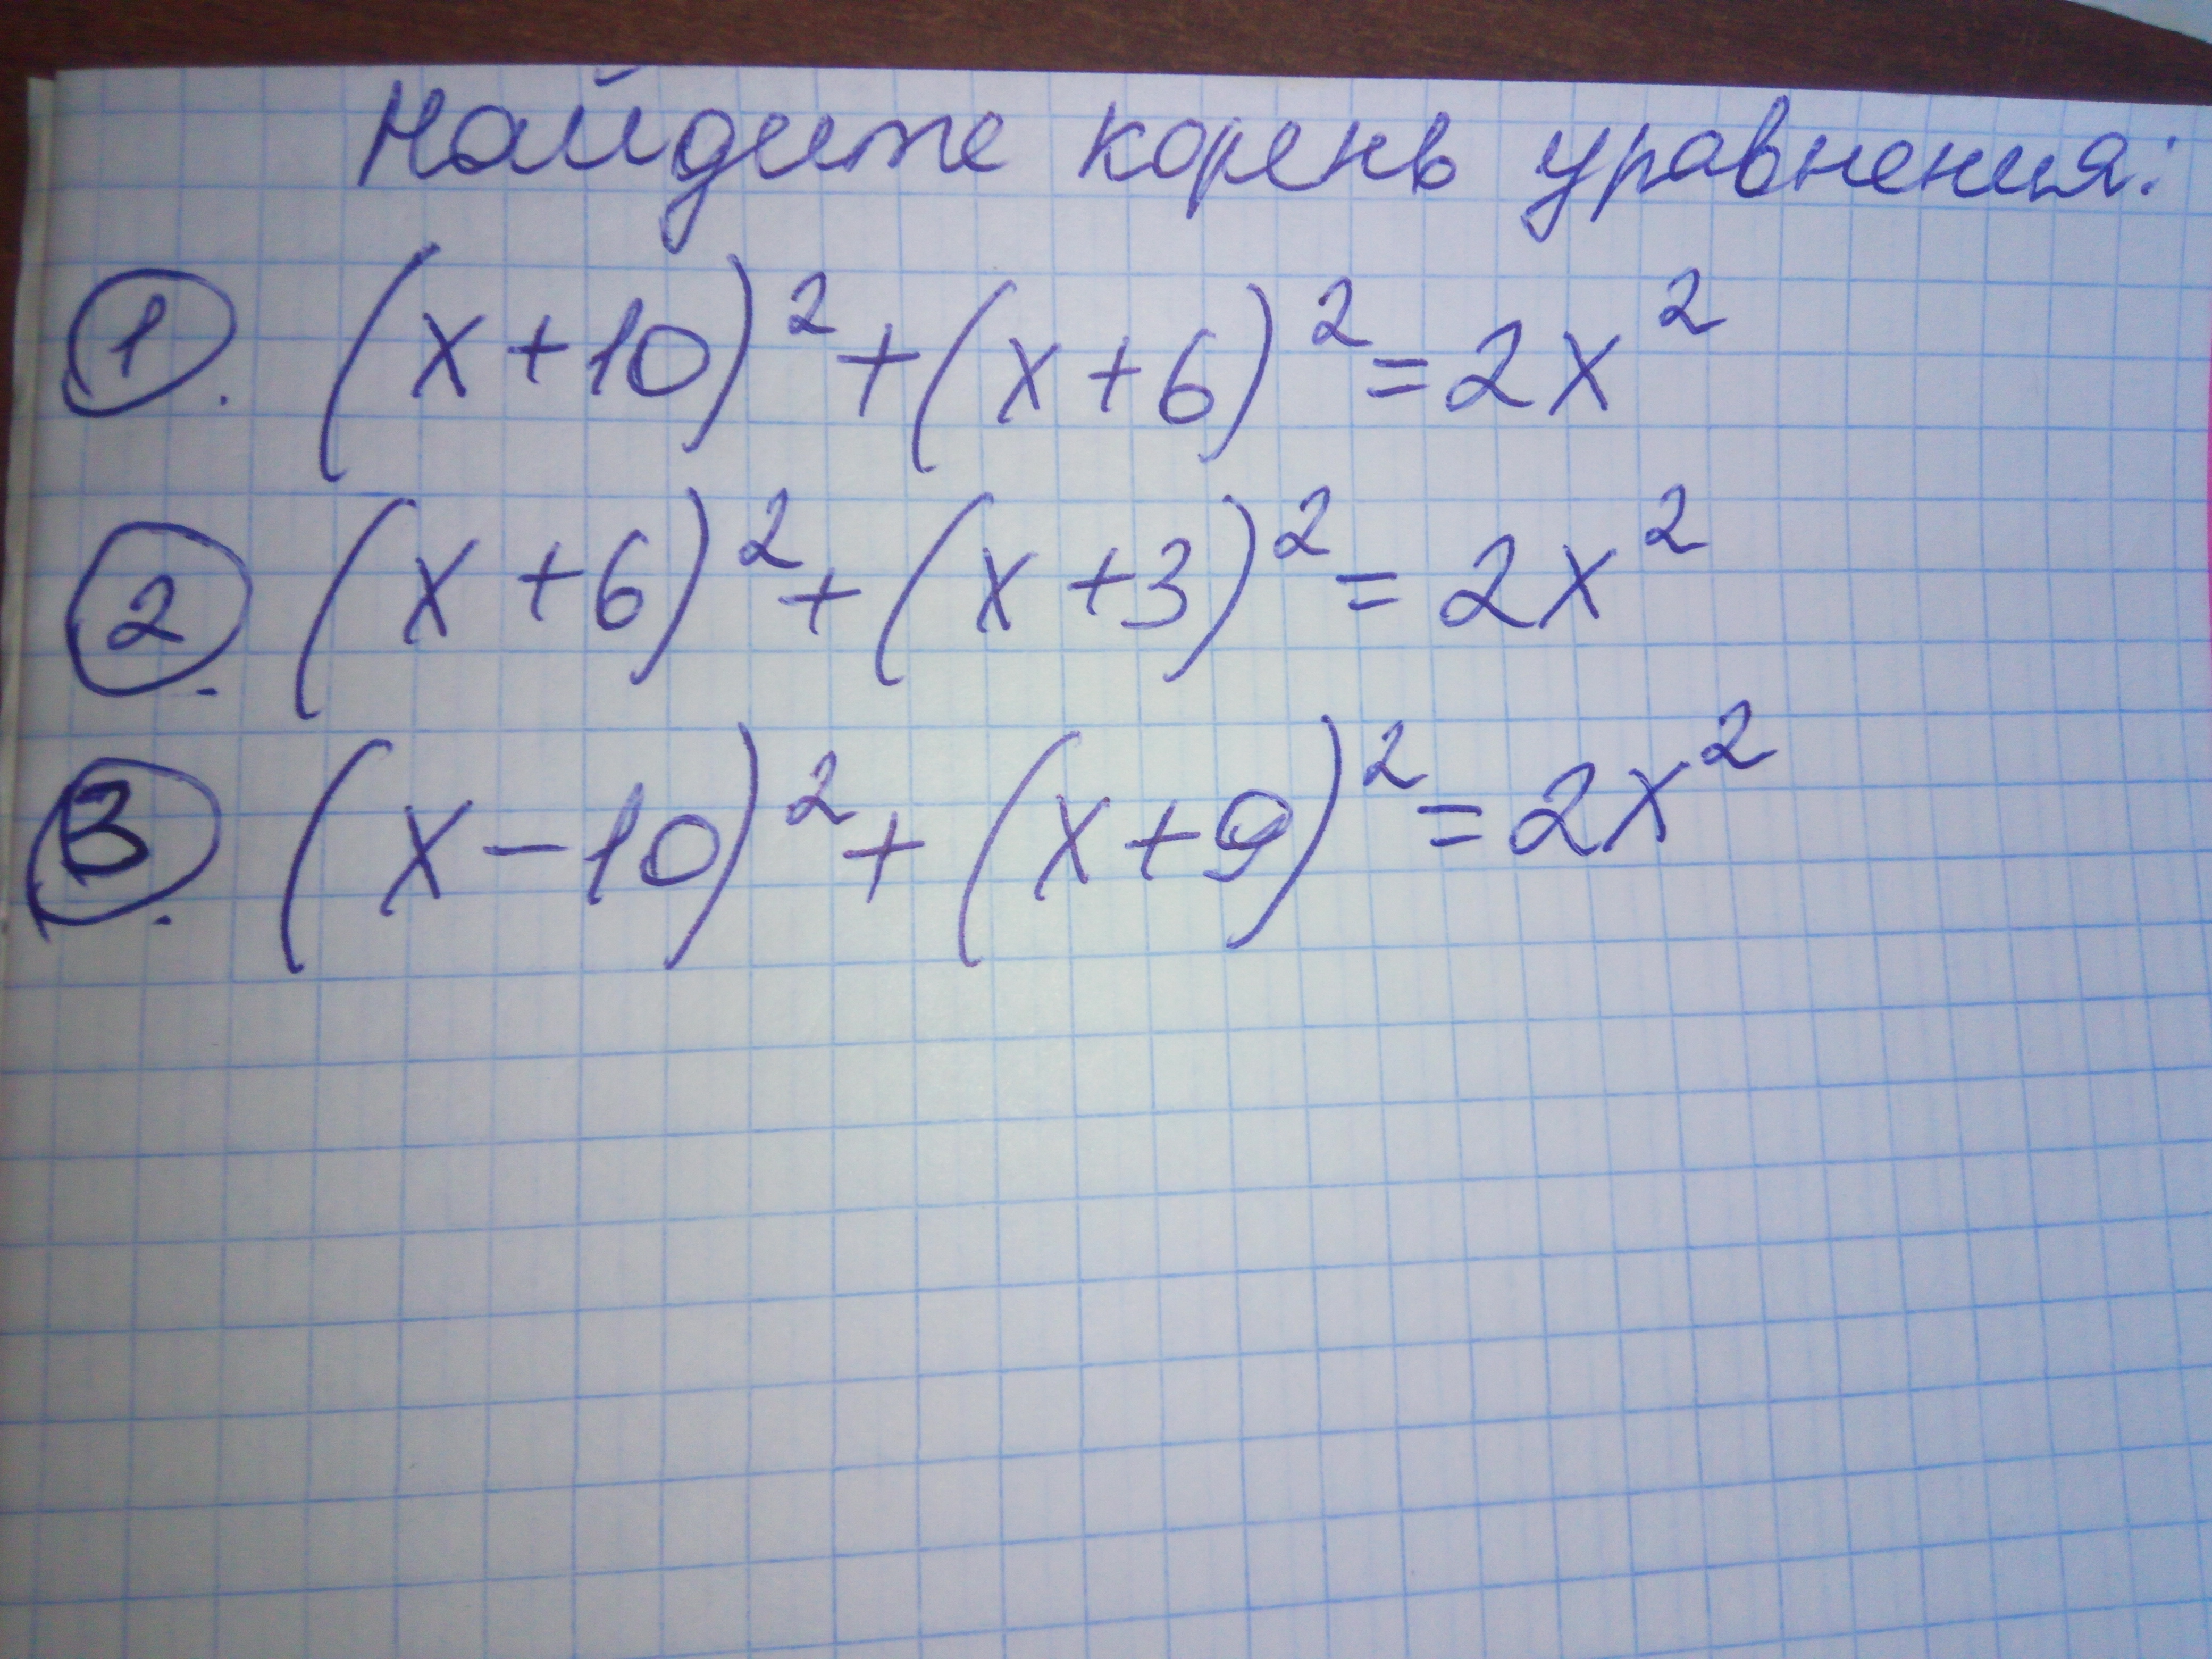 Найдите корень уравнения:
1. (x+10)²+(x+6)²=2x²
2. (x+6)²+(x+3)²=2x²
3. (x-10)²+(x+9)²=2x²